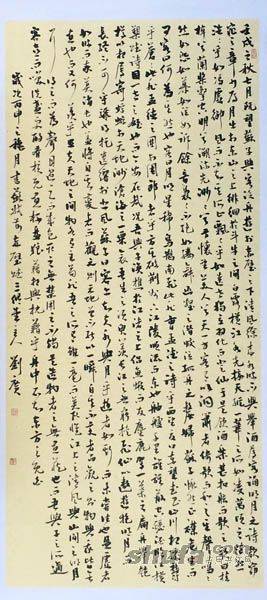 壬戌之秋七月既望蘇子與客泛舟遊於赤壁之下清風徐來水波不興舉酒屬客誦明月之詩歌窈
窕之章少焉月出於東山之上徘徊於斗牛之間白露橫江水光接天縱一葦之所如凌萬頃之茫然
浩浩乎如馮虛御風而不知其所止飄飄乎如遺世獨立羽化而登仙於是飲酒樂甚扣舷而歌之歌曰
桂棹兮蘭槳擊空明兮溯流光渺渺兮予懷望美人兮天一方客有吹洞簫者倚歌而和之其聲嗚嗚
然如怨如慕如泣如訴餘音嫋嫋不絕如縷舞幽壑之潛蛟泣孤舟之嫠婦蘇子愀然正襟危坐而
問客曰何為其然也客曰月明星稀烏鵲南飛此非曹孟德之詩乎西望夏口東望武昌山川相繆鬱
乎蒼蒼此非孟德之困於周郎者乎方其破荊州下江陵順流而東也舳艫千里旌旗蔽空釃酒臨江橫
槊賦詩固一世之雄也而今安在哉況吾與子漁樵於江渚之上侶魚蝦而友麋鹿駕一葉之扁舟舉匏
樽以相屬寄蜉蝣於天地渺滄海之一粟哀吾生之須臾羨長江之無窮挾飛仙以遨遊抱明月而
長終知不可乎驟得託遺響於悲風蘇子曰客亦知夫水與月乎逝者如斯而未嘗往也盈虛者
如彼而卒莫消長也蓋將自其變者而觀之則天地曾不能以一瞬自其不變者而觀之則物與我皆無
盡也而又何羨乎且夫天地之間物各有主苟非吾之所有雖一毫而莫取惟江上之清風與山間之明月
耳得之而為聲目遇之而成色取之無禁用之不竭是造物者之無盡藏也而吾與子之所共適
客喜而笑洗盞更酌肴核既盡杯盤狼藉相與枕藉乎舟中不知東方之既白
歲次丙申之穐月書蘇軾前赤壁賦主人劉廣